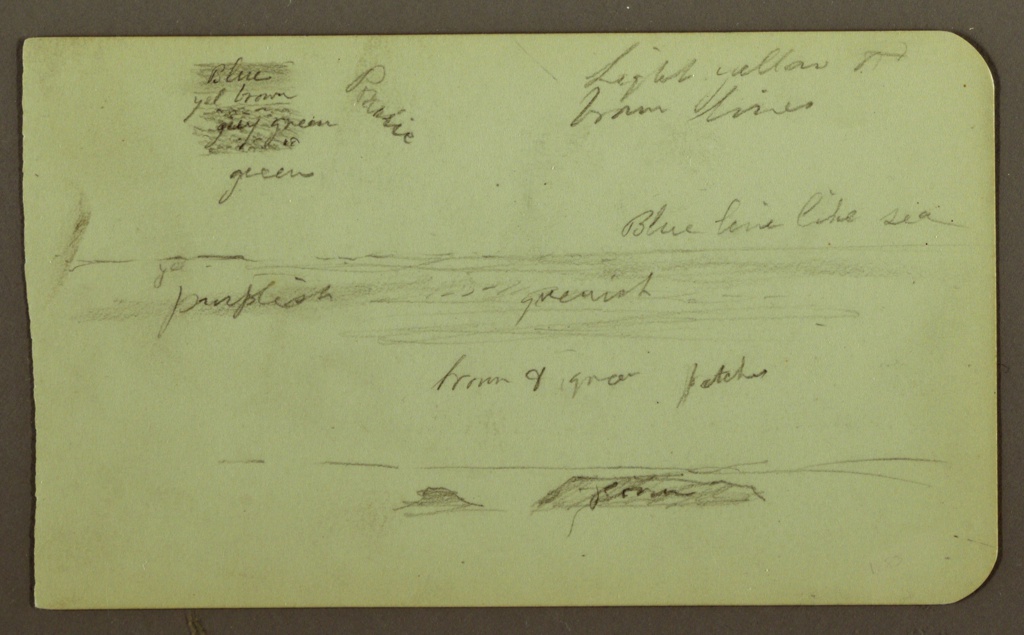 Blue
yel brown
grey green
green
Prairie
Light yellow &
brown lines
Blue line like sea
yel
purplish
greenish
brown & green patches